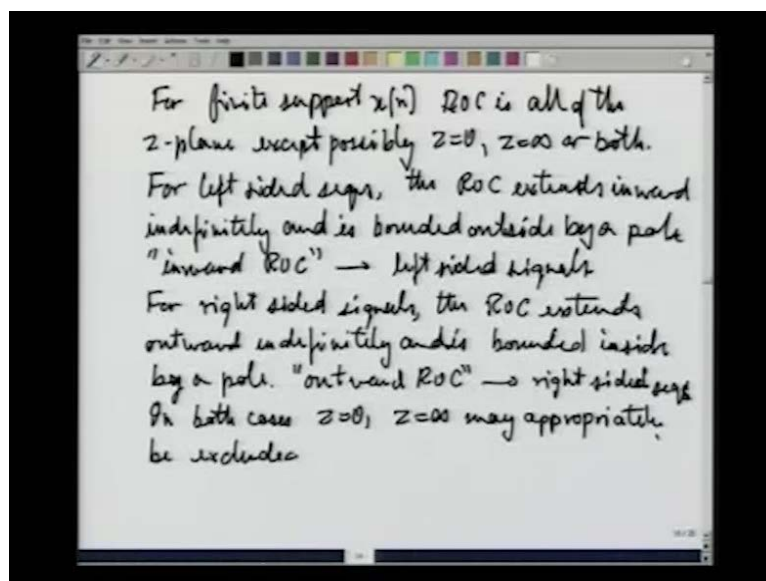 For finite support x[n] ROC is all of the
z-plane except possibly z=0, z=∞ or both.
For left sided seqs, the ROC extends inward
indefinitely and is bounded outside by a pole
"inward ROC" → left sided signals
For right sided signals, the ROC extends
outward indefinitely and is bounded inside
by a pole. "outward ROC" → right sided seqs
In both cases z=0, z=∞ may appropriately
be excluded